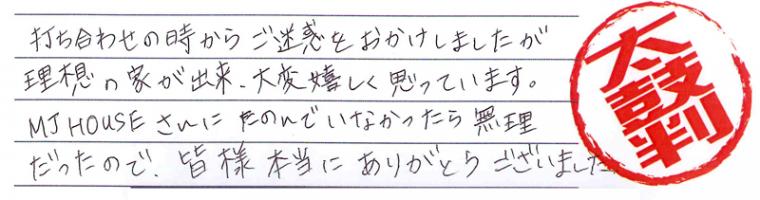 打ち合わせの時からご迷惑をおかけしましたが
理想の家が出来、大変嬉しく思っています。
MJ HOUSEさんにたのんでいなかったら無理
だったので、皆様本当にありがとうございました
太鼓判